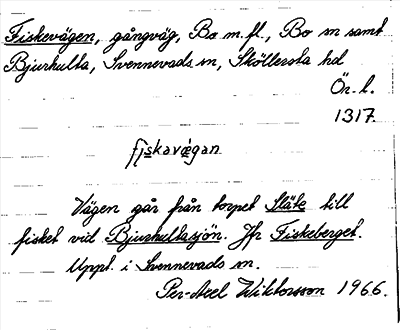 Fiskevägen, gångväg, Bo m.fl., Bo sn samt
Bjurhulta, Svennevads sn, Sköllersta hd
Ör. l.
1317
fiskavägan
Vägen går från torpet Släte till
fisket vid Bjurhultasjön. Jfr Fiskeberget.
Uppt. i Svennevads sn.
Per-Axel Wiktorsson 1966.